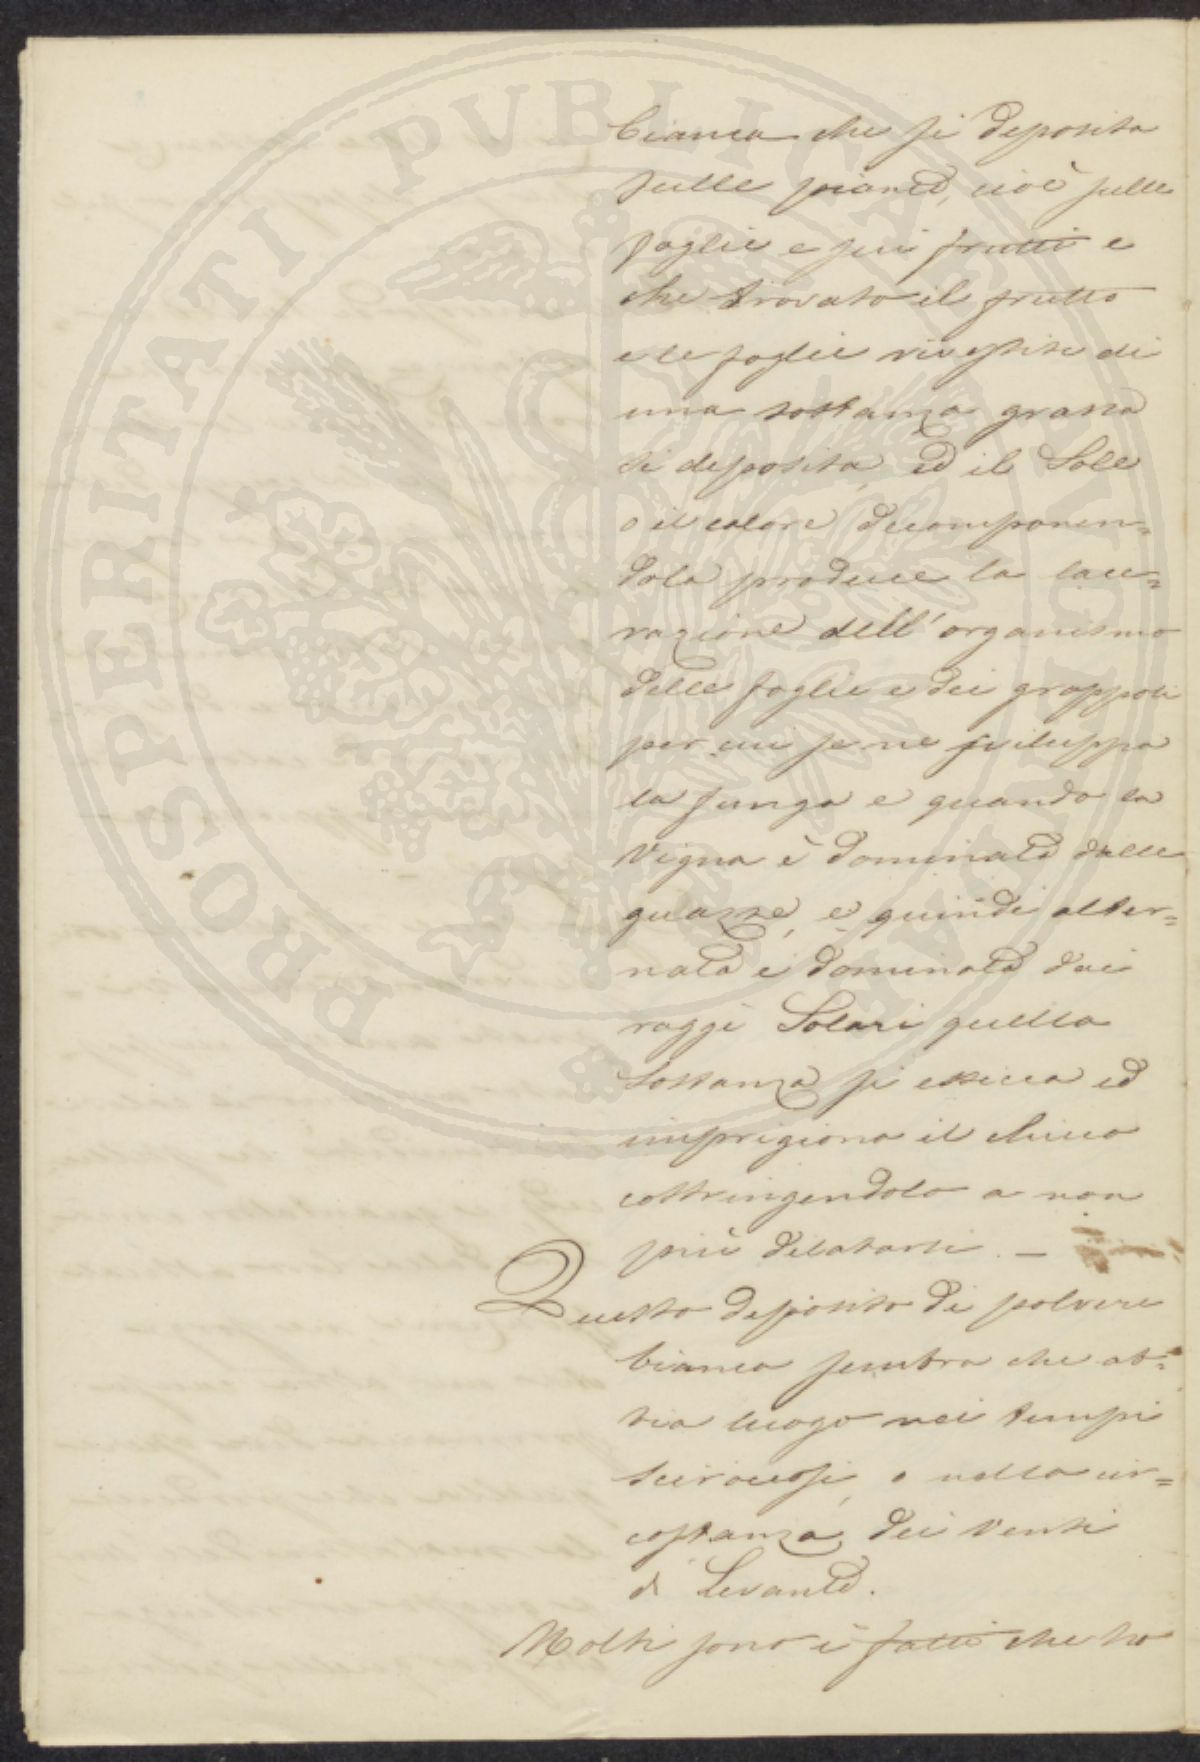 PROSPERITATI PVBLICAE AVGENDAE
bianca che si deposita
sulle piante, cioè sulle
foglie e sui frutti e
che trovato il frutto
e le foglie rivestite di
una sostanza grassa
si deposita, ed il Sole
o il calore decomponen=
dola produce la lace=
razione dell'organismo
delle foglie e dei grappoli
per cui se ne sviluppa
la funga e quando la
vigna è dominata dalle
guazze, e quindi alter=
nata è dominata dai
raggi Solari quella
sostanza si essicca ed
imprigiona il chicco
costringendolo a non
più dilatarsi. —
Questo deposito di polvere
bianca sembra che ab=
bia luogo nei tempi
sciroccosi, o nella cir=
costanza dei venti
di Levante.
Molti sono i fatti che ho